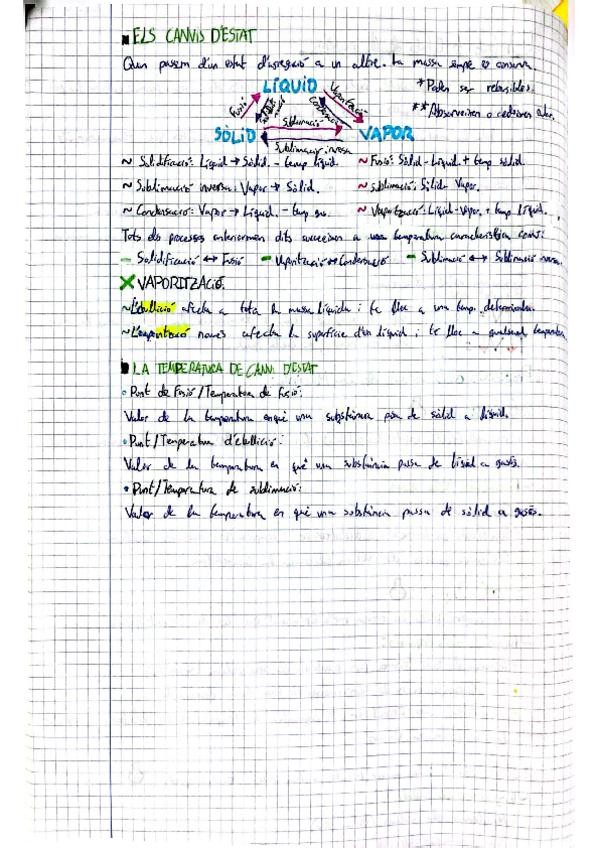 ELS CANVIS D'ESTAT
Quan passem d'un estat d'agregació a un altre. La massa sempre es conserva.
LÍQUID
* Poden ser reversibles.
Fusió
Vaporització
Condensació
** Absorveixen o cedeixen
Sublimació
SÒLID
VAPOR
Sublimació inversa
~ Solidificació: Líquid → Sòlid. - temp líquid.
~ Fusió: Sòlid - Líquid + temp sòlid.
~ Sublimació inversa: Vapor → Sòlid.
~ Sublimació: Sòlid Vapor.
~ Condensació: Vapor → Líquid. - temp gas.
~ Vaporització: Líquid - Vapor. + temp Líquid.
Tots els processos anteriorment dits succeixen a una temperatura característica
- Solidificació ↔ Fusió - Vaporització ↔ Condensació - Sublimació ↔ Sublimació inversa.
VAPORITZACIÓ.
~ L'ebullició afecta a tota la massa líquida i te lloc a una temp. determinada.
~ L'evaporització només afecta la superfície d'un líquid i te lloc a qualsevol temperatura
LA TEMPERATURA DE CANVI D'ESTAT
• Punt de Fusió / Temperatura de fusió:
Valor de la temperatura en què una substància passa de sòlid a líquid.
• Punt / Temperatura d'ebullició:
Valor de la temperatura en què una substància passa de líquid a gasós.
• Punt / Temperatura de sublimació:
Valor de la temperatura en què una substància passa de sòlid a gasós.